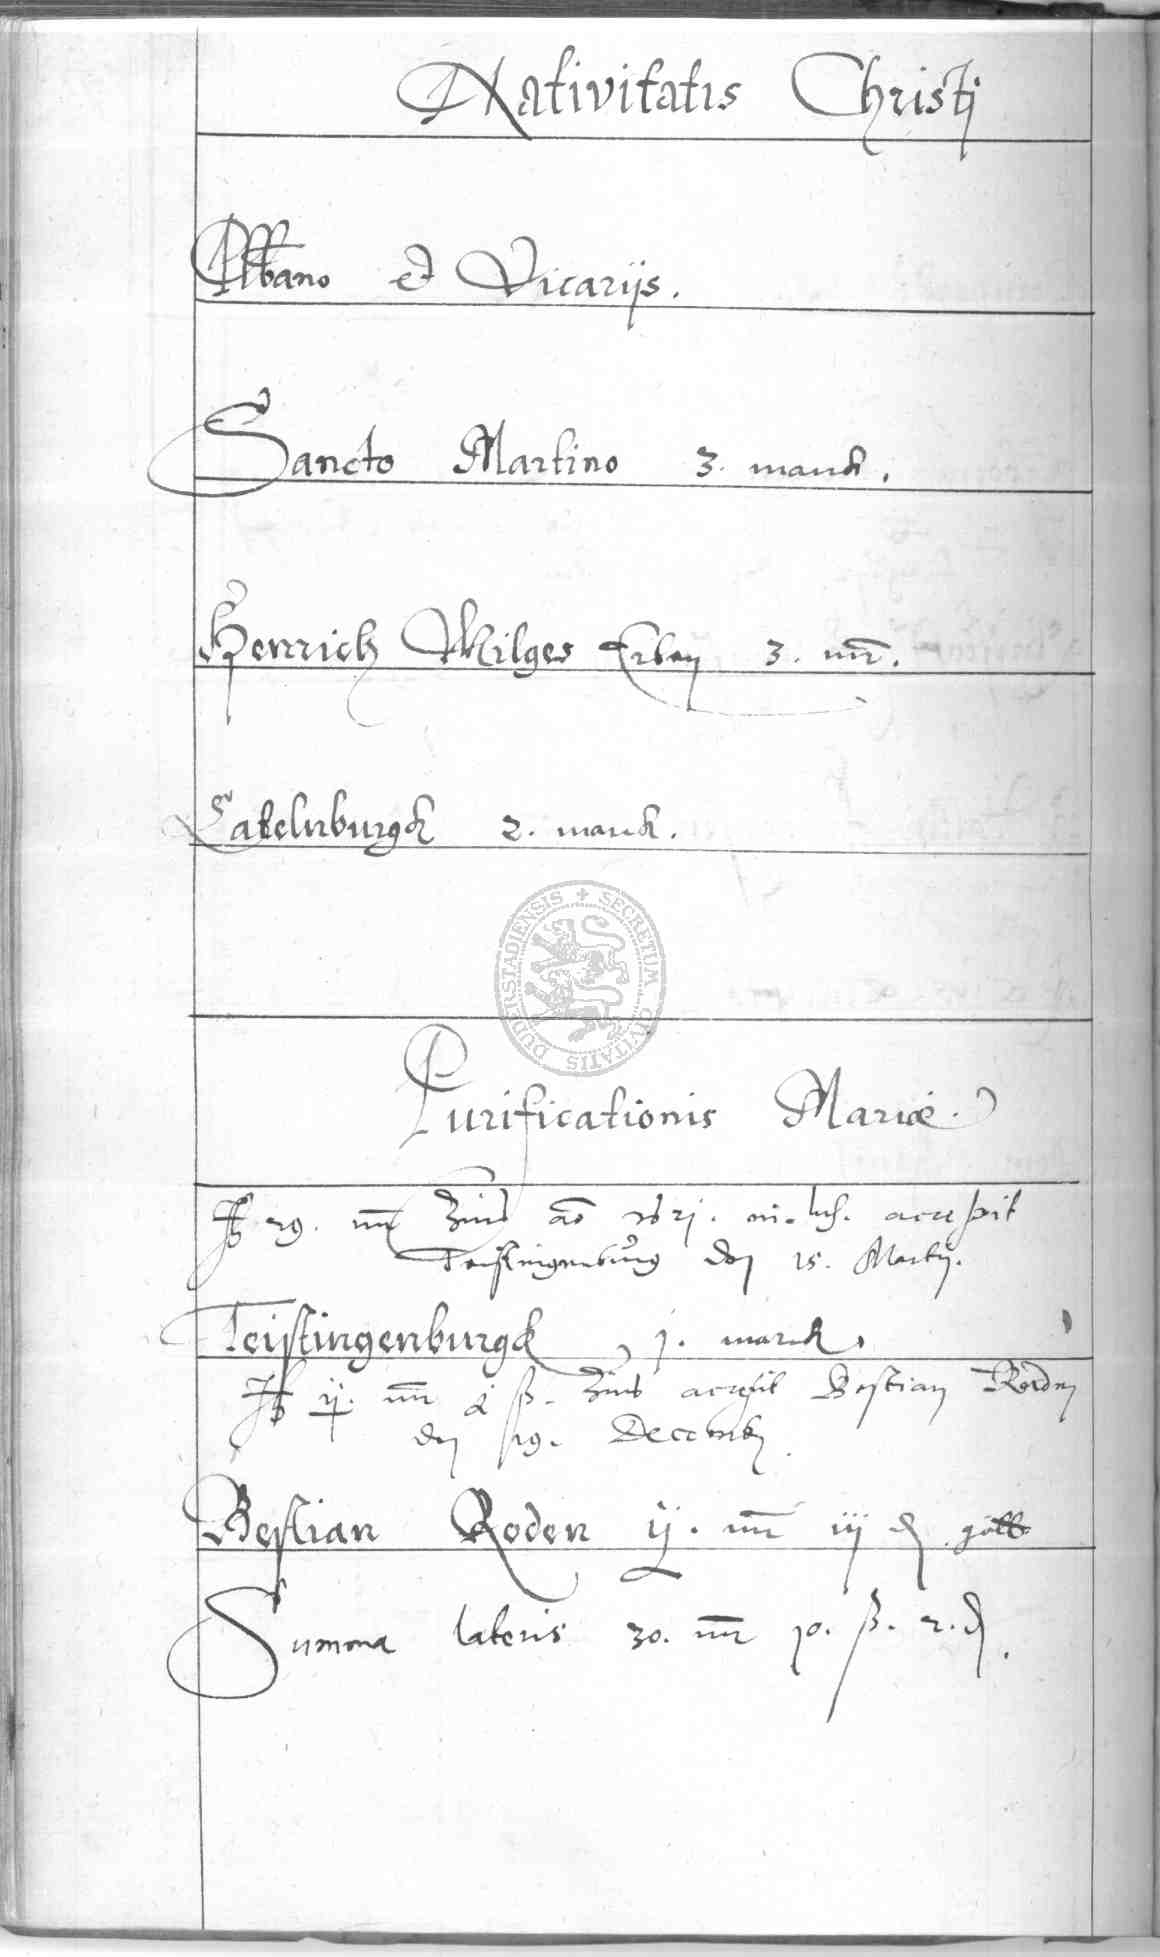 Nativitatis Christi
Plbano et Vicarijs.
Sancto Martino 3. marck.
Henrich Milges Erben 3. mr.
Catelnburgk 2. marck.
SECRETUM CIVITATIS DUDERSTADIENSIS
Purificationis Mariæ.
mr Zins ao accepit
Teistingenburg den 15. Martij.
Teistingenburgk j. marck.
ij. mr ß. Zins accepit Bestian Roden
den 19. Decemb
Bestian Roden ij. mr iij ₰ gött
Summa lateris 30. mr 10. ß. 2. ₰.